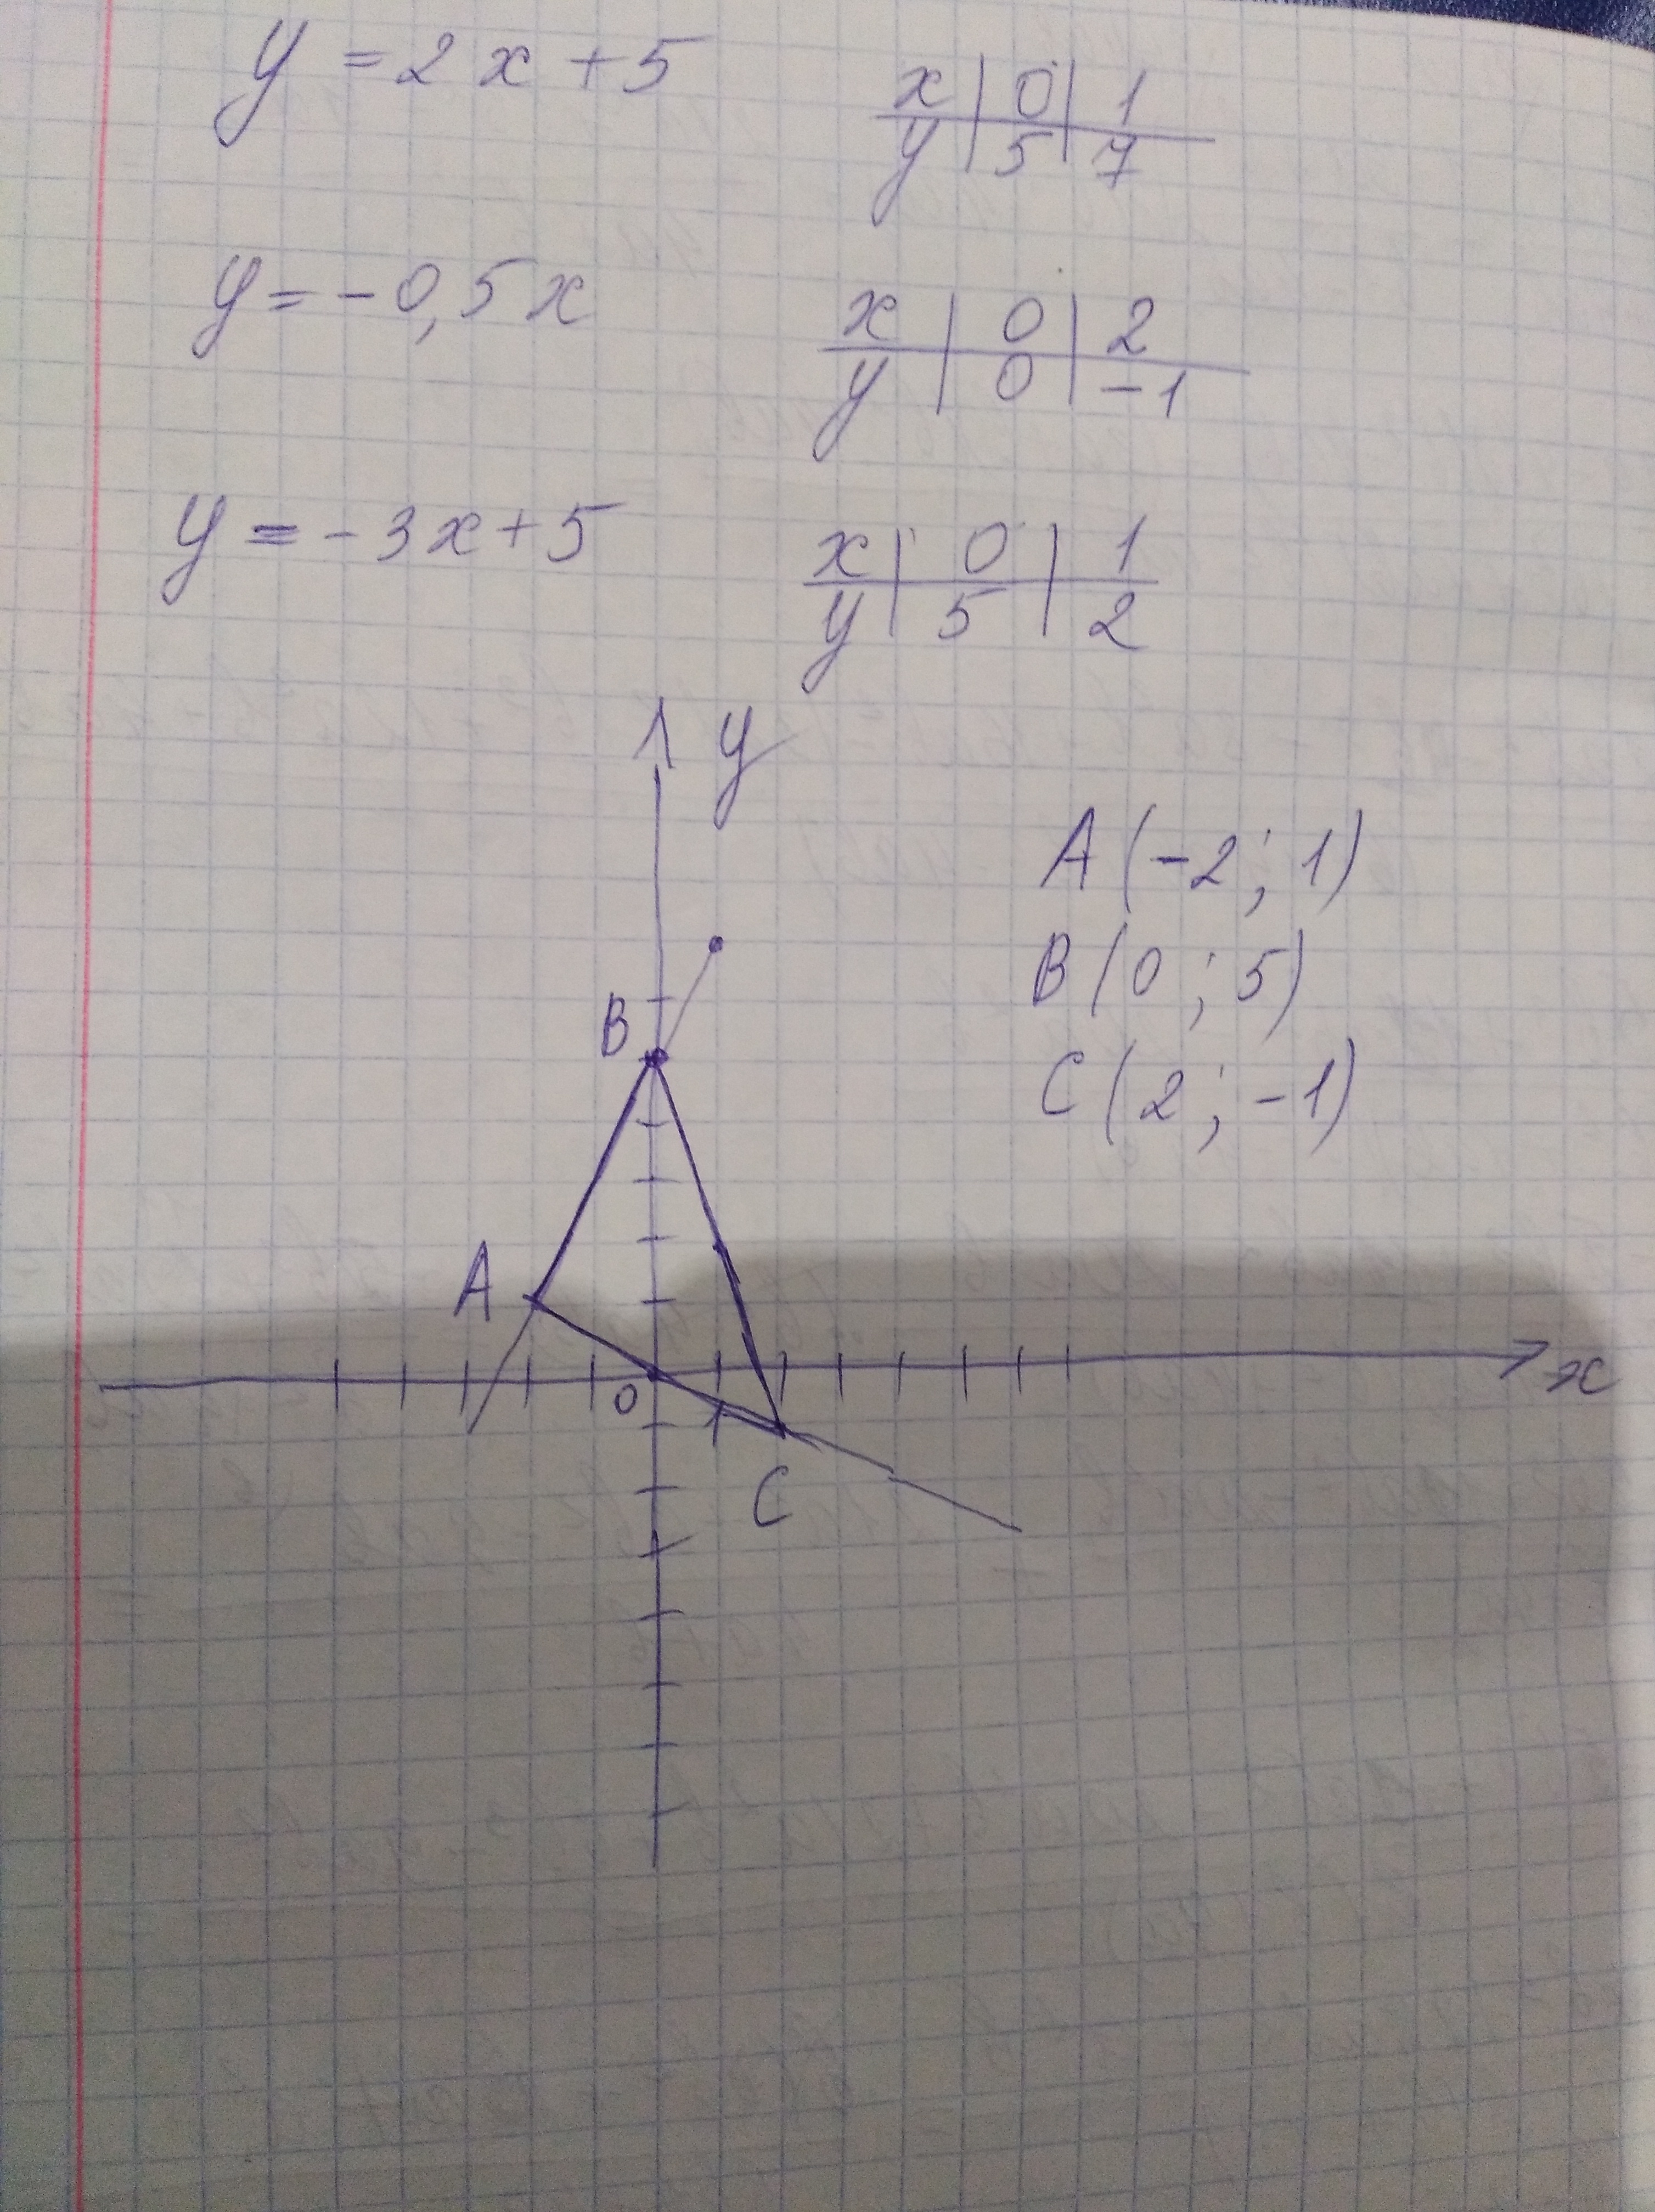 y = 2x + 5
x | 0 | 1
y | 5 | 7
y = -0,5x
x | 0 | 2
y | 0 | -1
y = -3x + 5
x | 0 | 1
y | 5 | 2
y
A(-2; 1)
B(0; 5)
C(2; -1)
B
A
0
x
C